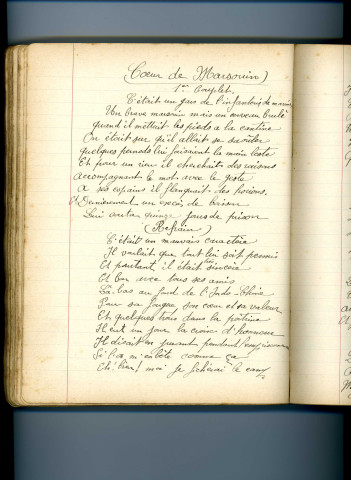 Cœur de Marsouin)
1er Couplet
C'était un gars de l'infanterie de marine
Un brave marsouin mais un cerveau brulé
quand il mettait les pieds a la cantine
On était sur qu'il allait se
quelques lui faisaient la main leste
Et pour un rien il cherchait des raisons
accompagnant le mot avec le geste
A ses copains il flanquait des horions
Dernièrement un excès de boisson
Lui couta quinze jours de prison
(Refrain)
C'était un mauvais caractère
Il voulait que tout lui soit permis
Et pourtant il était sincère
Et bon avec tous ses amis
La bas au fond de l'Indo Chine
Pour sa fougue son cœur et sa valeur
Et quelques trous dans la poitrine
Il eut un jour la croix d'honneur
Il disait en pendant
Si l'on m'embête comme ça
Eh! bien! moi je le camp